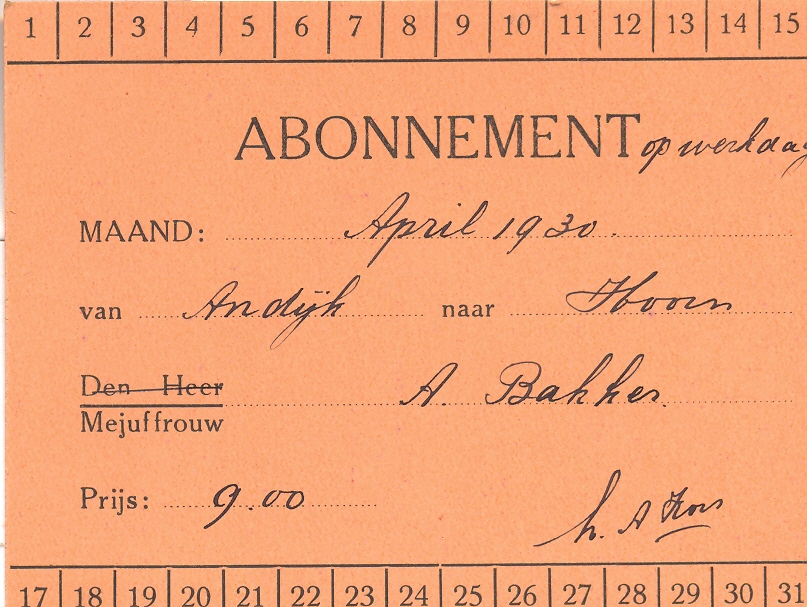 1 2 3 4 5 6 7 8 9 10 11 12 13 14 15
ABONNEMENT op werkdag
MAAND: April 1930.
van Andijk naar Hoorn
Den Heer
A. Bakker.
Mejuffrouw
Prijs: 9.00
17 18 19 20 21 22 23 24 25 26 27 28 29 30 31